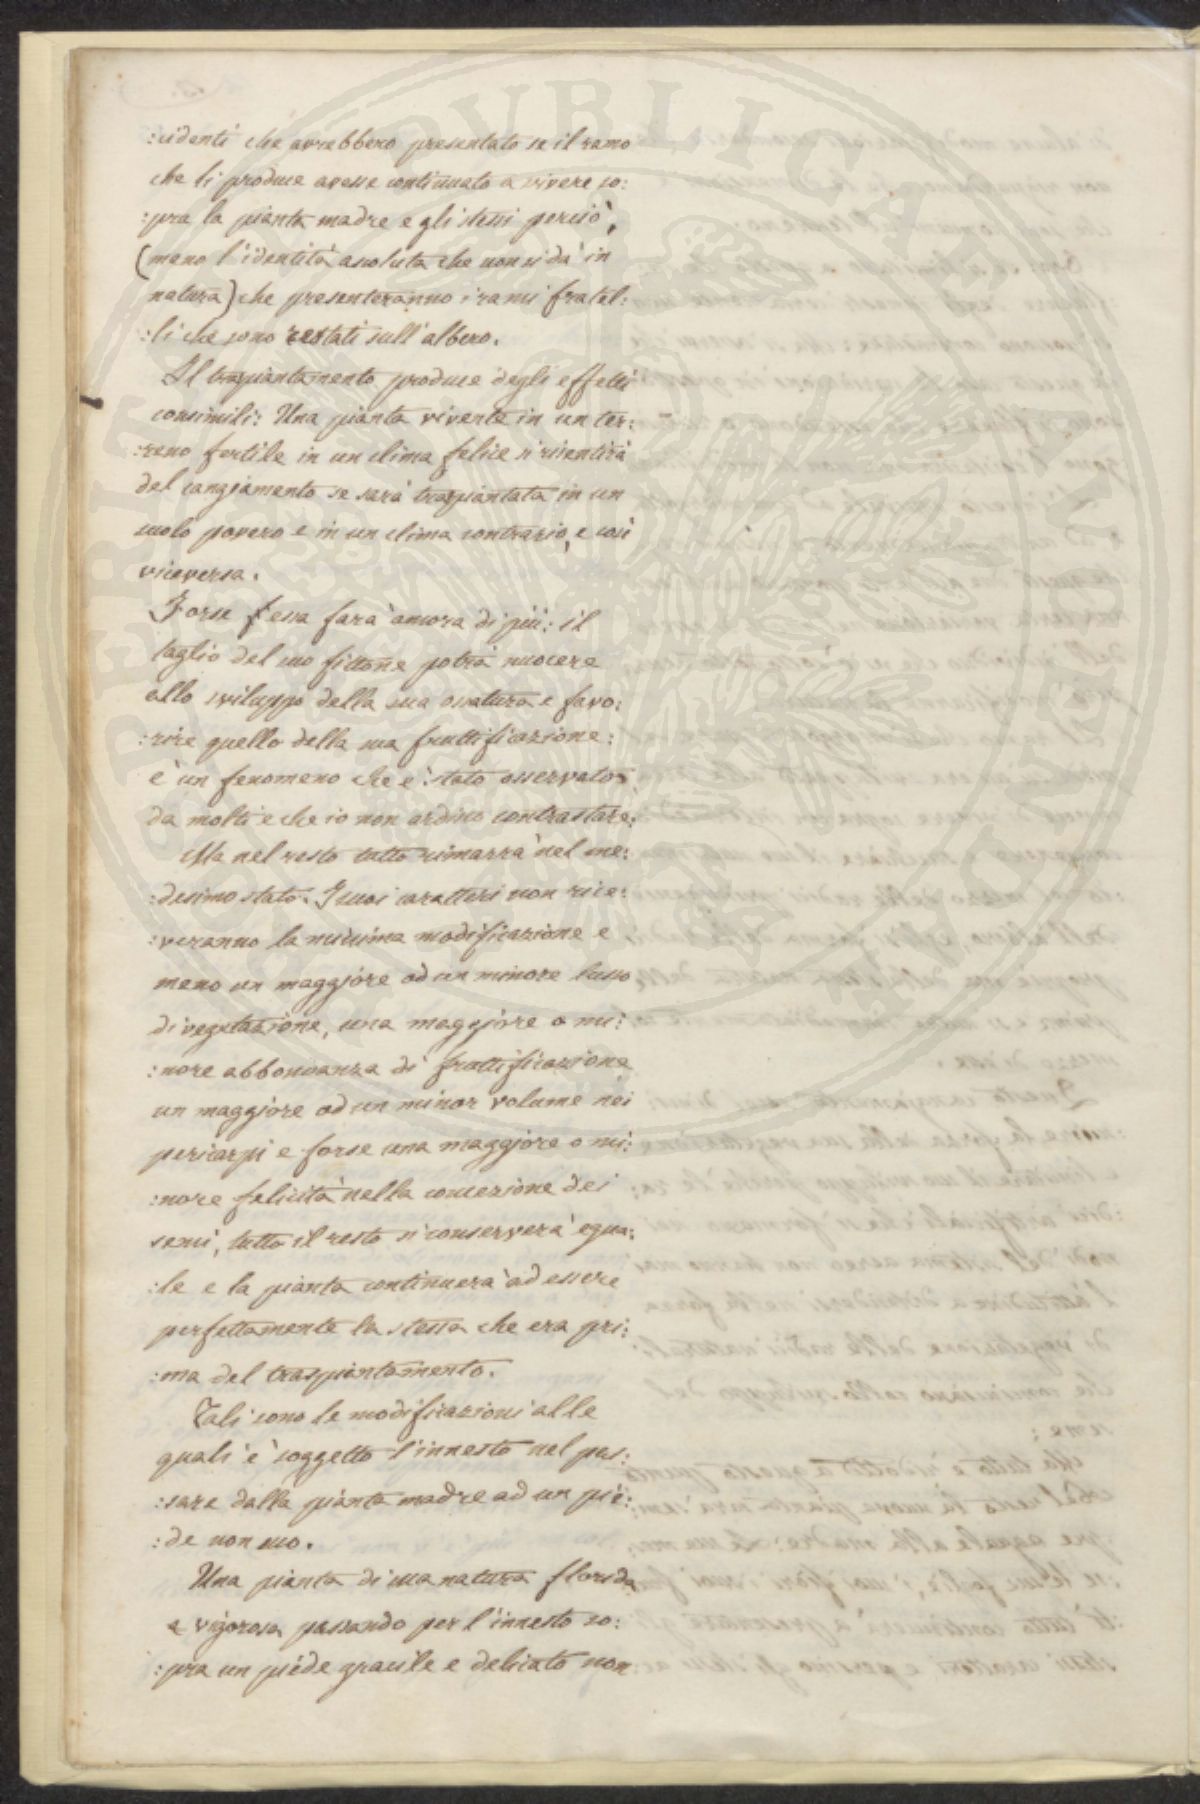 :cidenti che avrebbero presentato se il ramo
che li produce avesse continuato a vivere so:
:pra la pianta madre e gli stessi perciò,
(meno l'identità assoluta che non si dà in
natura) che presenteranno i rami fratel:
:li che sono restati sull'albero.
Il trapiantamento produce degli effetti
consimili: Una pianta vivente in un ter:
:reno fertile in un clima felice si risentirà
del cangiamento se sarà trapiantata in un
suolo povero e in un clima contrario, e così
viceversa.
Forse essa farà ancora di più: il
taglio del suo fittone potrà nuocere
allo sviluppo della sua ossatura e favo:
:rire quello della sua fruttificazione:
è un fenomeno che è stato osservato
da molti e che io non ardisco contrastare.
Ma nel resto tutto rimarrà nel me:
:desimo stato. I suoi caratteri non rice:
:veranno la minima modificazione e
meno un maggiore od un minore lusso
di vegetazione, una maggiore o mi:
:nore abbondanza di fruttificazione
un maggiore od un minor volume nei
pericarpi e forse una maggiore o mi:
:nore felicità nella concezione dei
semi, tutto il resto si conserverà egua:
:le e la pianta continuerà ad essere
perfettamente la stessa che era pri:
:ma del traspiantamento.
Tali sono le modificazioni alle
quali è soggetto l'innesto nel pas:
:sare dalla pianta madre ad un pie:
:de non suo.
Una pianta di sua natura florida
e vigorosa passando per l'innesto so:
:pra un piede gracile e delicato non